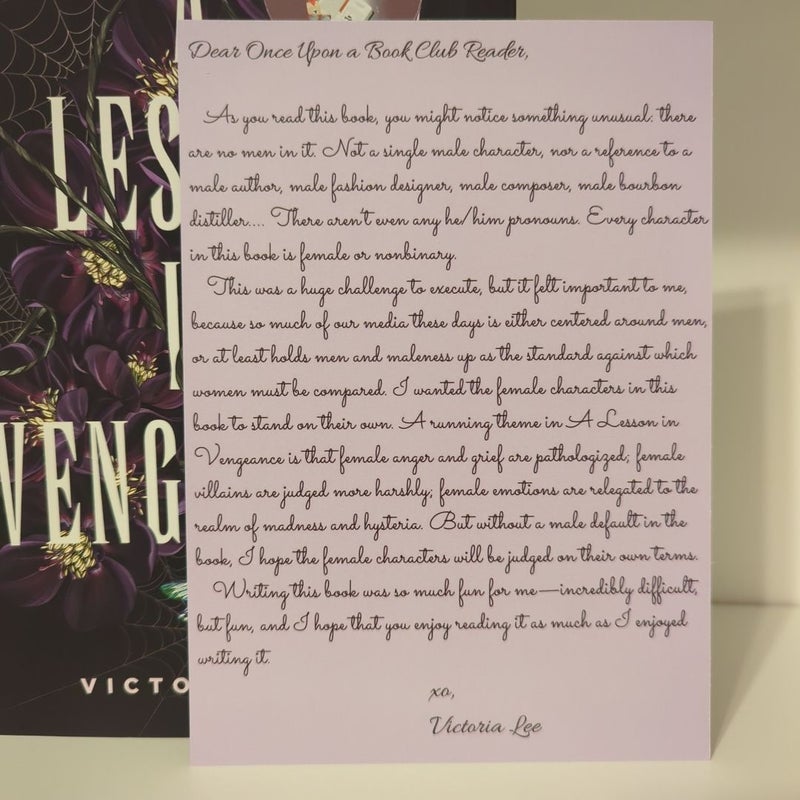 A
LES
VENG
VICTO
Dear Once Upon a Book Club Reader,
As you read this book, you might notice something unusual: there
are no men in it. Not a single male character, nor a reference to a
male author, male fashion designer, male composer, male bourbon
distiller.... There aren't even any he/him pronouns. Every character
in this book is female or nonbinary.
This was a huge challenge to execute, but it felt important to me,
because so much of our media these days is either centered around men,
or at least holds men and maleness up as the standard against which
women must be compared. I wanted the female characters in this
book to stand on their own. A running theme in A Lesson in
Vengeance is that female anger and grief are pathologized; female
villains are judged more harshly; female emotions are relegated to the
realm of madness and hysteria. But without a male default in the
book, I hope the female characters will be judged on their own terms.
Writing this book was so much fun for me—incredibly difficult,
but fun, and I hope that you enjoy reading it as much as I enjoyed
writing it.
xo,
Victoria Lee